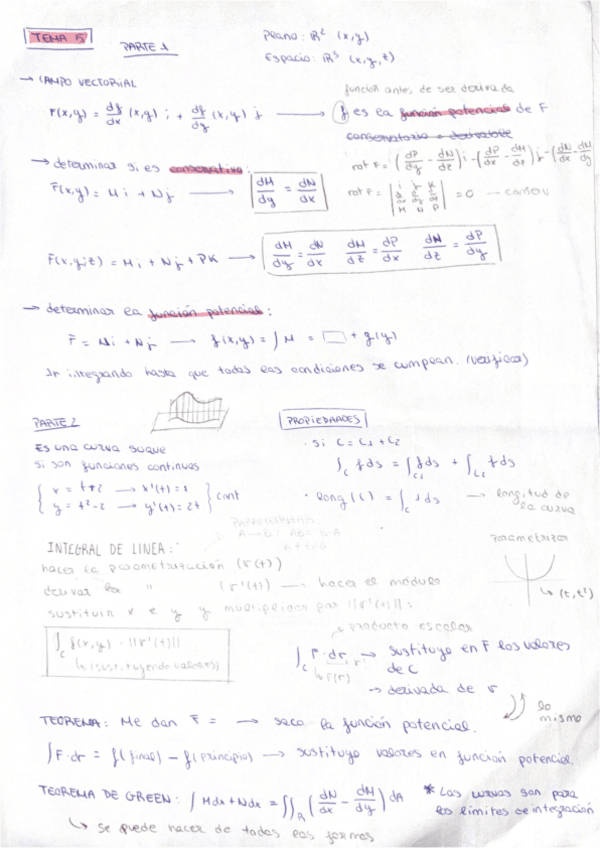 TEMA 5
PARTE 1
Plano: ℝ² (x,y)
Espacio: ℝ³ (x,y,z)
→ CAMPO VECTORIAL
función antes de ser derivada
F(x,y) = df/dx (x,y) i + df/dy (x,y) j → f es la función potencial de F
→ determinar si es conservativo:
F(x,y) = Mi + Nj → dM/dy = dN/dx
rot F = (dP/dy - dN/dz) i - (dP/dx - dM/dz) j - (dN/dx - dM/dy
rot F = | i j K M N P | = 0
F(x,y,z) = Mi + Nj + PK → dM/dy = dN/dx dM/dz = dP/dx dN/dz = dP/dy
→ determinar la función potencial:
F = Mi + Nj → f(x,y) = ∫ M = □ + g(y)
Ir integrando hasta que todas las condiciones se cumplan. (verificar)
PARTE 2
Es una curva suave
si son funciones continuas
{ x = t+2 → x'(t) = 1
y = t²-2 → y'(t) = 2t } cont
PROPIEDADES
· si C = C1 + C2
∫c f ds = ∫c1 f ds + ∫c2 f ds
· long (C) = ∫c 1 ds → longitud de la curva
INTEGRAL DE LINEA:
hacer la parametrización (r(t))
derivar la " (r'(t)) → hacer el módulo
sustituir x e y y multiplicar por ||r'(t)||:
∫c f(x,y) · ||r'(t)||
↳ (sustituyendo valores)
parametrizar
↳ (t, t²)
producto escalar
∫c F · dr → sustituyo en F los valores de C
↳ F(r)
→ derivada de r
lo mismo
TEOREMA: Me dan F = → saco la función potencial.
∫ F · dr = f(final) - f(principio) → sustituyo valores en función potencial.
TEOREMA DE GREEN: ∫ Mdx + Ndx = ∫∫R (dN/dx - dM/dy) dA
* Las curvas son para los límites de integración
↳ se puede hacer de todas las formas